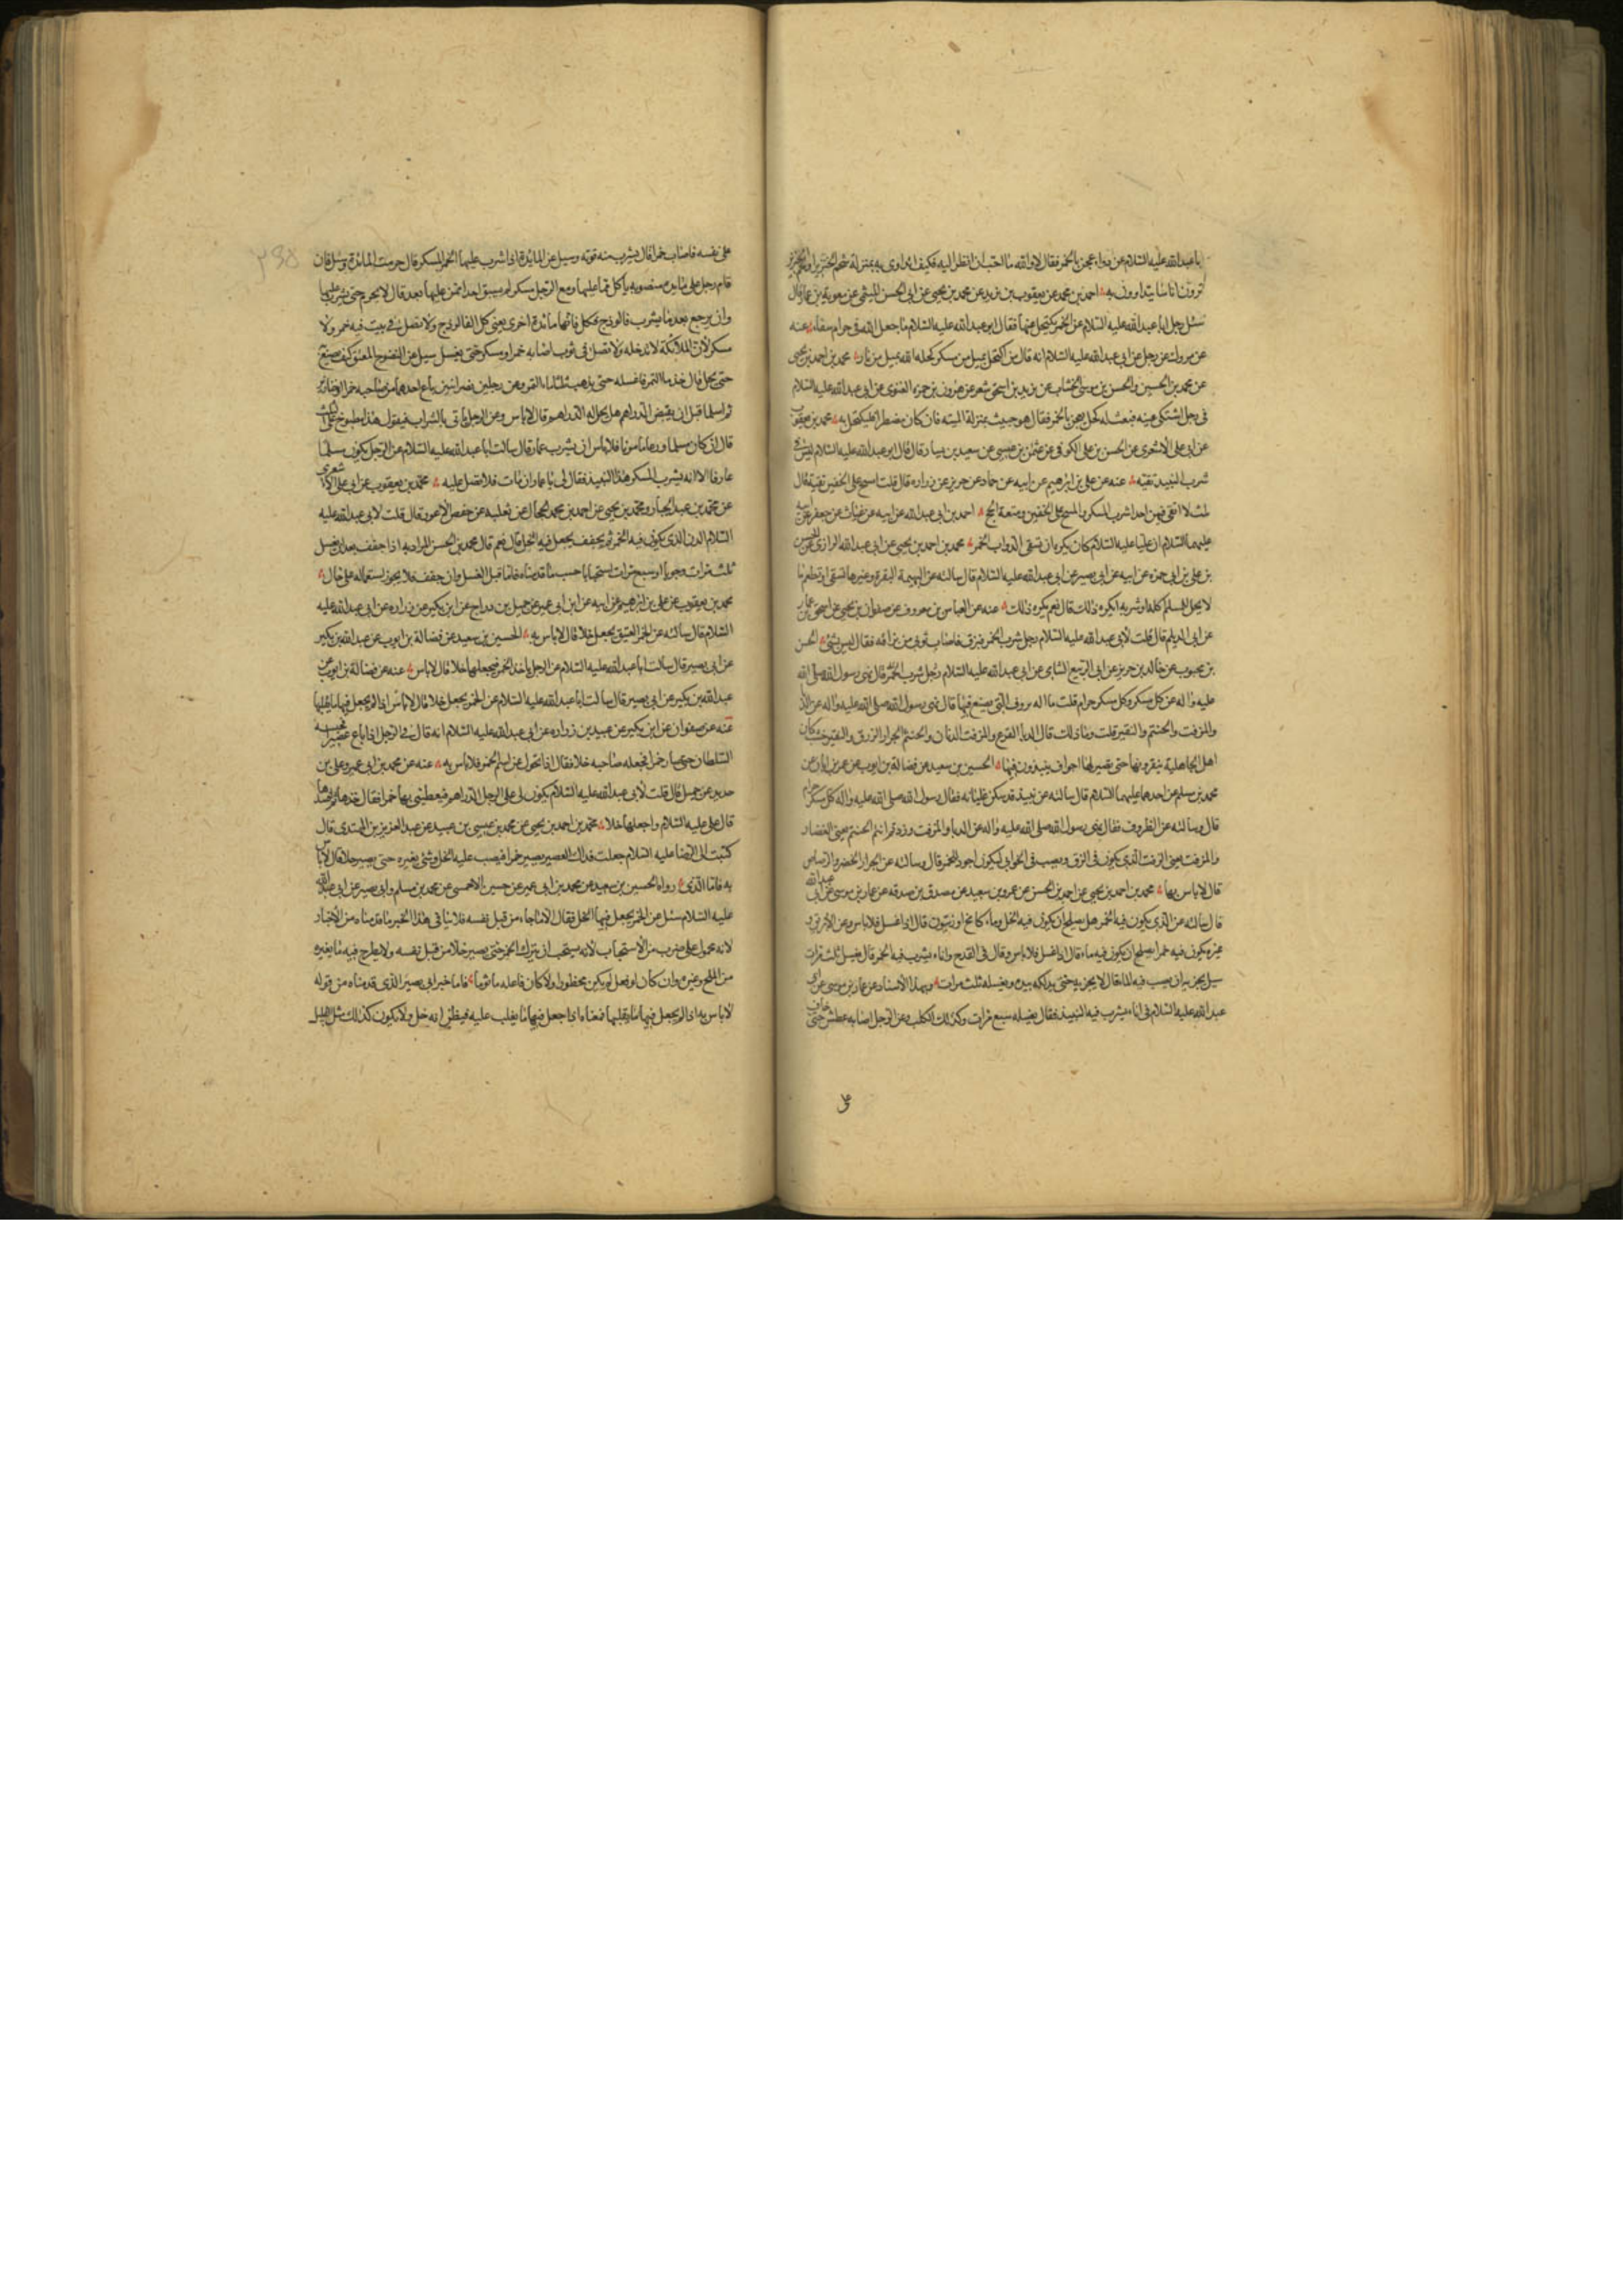 با عبد الله عليه السلام عن دواء عجن بالخمر فقال لا والله ما احب ان انظر اليه فكيف اتداوى به بمنزلة شحم الخنزير او لحم الخنزير
ترون اناسا يتداوون به احمد بن محمد عن يعقوب بن يزيد عن محمد بن يحيى عن ابى الحسن الميثمى عن معوية بن عمار قال
سئل رجل ابا عبد الله عليه السلام عن الخمر يكتحل منها فقال ابو عبد الله عليه السلام ما جعل الله فى حرام شفاء عنه
عن مروك عن رجل عن ابى عبد الله عليه السلام انه قال من اكتحل بميل من مسكر كحله الله بميل من نار محمد بن احمد بن يحيى
عن محمد بن الحسين والحسن بن موسى الخشاب عن يزيد بن اسحق شعر عن هرون بن حمزه الغنوى عن ابى عبد الله عليه السلام
فى رجل اشتكى عينه فبعث له كحل يعجن بالخمر فقال هو خبيث بمنزلة الميته فان كان مضطرا فليكتحل به محمد بن يعقوب
عن ابى على الاشعرى عن الحسن بن على الكوفى عن عثمن بن عيسى عن سعيد بن يسار قال قال ابو عبد الله عليه السلام ليس فى
شرب النبيذ تقيه عنه عن على بن ابرهيم عن ابيه عن حماد عن حريز عن زراره قال قلت امسح على الخفين تقية فقال
ثلث لا اتقى فيهن احدا شرب المسكر والمسح على الخفين ومتعة الحج احمد بن ابى عبد الله عن ابيه عن غياث عن جعفر عن ابيه
عليهما السلام ان عليا عليه السلام كان يكره ان تسقى الدواب الخمر محمد بن احمد بن يحيى عن ابى عبد الله الرازى عن الحسن
بن على بن ابى حمزه عن ابيه عن ابى بصير عن ابى عبد الله عليه السلام قال سالته عن البهيمة البقرة وغيرها تسقى او تطعم ما
لا يحل للمسلم اكله او شربه ايكره ذلك قال نعم يكره ذلك عنه عن العباس بن معروف عن صفوان بن يحيى عن اسحق بن عمار
عن ابى الديلم قال قلت لابى عبد الله عليه السلام رجل شرب الخمر فبزق فاصاب ثوبى من بزاقه فقال ليس بشئ الحسن
بن محبوب عن خالد بن جرير عن ابى الربيع الشامى عن ابى عبد الله عليه السلام رجل شرب الخمر قال نهى رسول الله صلى الله
عليه واله عن كل مسكر وكل مسكر حرام قلت فالظروف التى يصنع فيها قال نهى رسول الله صلى الله عليه واله عن الدبا
والمزفت والحنتم والنقير قلت وما ذلك قال الدبا القرع والمزفت الدنان والحنتم الجرار الزرق والنقير خشب كان
اهل الجاهلية ينقرونها حتى يصير لها اجواف ينبذون فيها الحسين بن سعيد عن فضالة بن ايوب عن عمر بن ابان عن
محمد بن مسلم عن احدهما عليهما السلام قال سالته عن نبيذ قد سكن غليانه فقال رسول الله صلى الله عليه واله كل مسكر حرام
قال وسالته عن الظروف فقال نهى رسول الله صلى الله عليه واله عن الدبا والمزفت وزدتم انتم الحنتم يعنى الغضار
والمزفت يعنى الزفت الذى يكون فى الزق ويصب فى الخوابى ليكون اجود للخمر قال وسالته عن الجرار الخضر والرصاص
قال لا باس بها محمد بن احمد بن يحيى عن احمد بن الحسن عن عمرو بن سعيد عن مصدق بن صدقه عن عمار بن موسى عن ابى عبد الله
قال سالته عن الدن يكون فيه الخمر هل يصلح ان يكون فيه الخل وماء كامخ او زيتون قال اذا غسل فلا باس وعن الابريق
غيره يكون فيه خمر ايصلح ان يكون فيه ماء قال اذا غسل فلا باس وقال فى القدح واناء يشرب فيه الخمر قال يغسل ثلث مرات
سئل يجزيه ان يصب فيه الماء قال لا يجزيه حتى يدلكه بيده ويغسله ثلث مرات وبهذا الاسناد عن عمار بن موسى عن ابى
عبد الله عليه السلام فى اناء يشرب فيه النبيذ فقال يغسله سبع مرات وكذلك الكلب وعن الرجل اصابه عطش حتى خاف
على
على نفسه فاصاب خمرا قال يشرب منه قوته وسئل عن المائدة اذا شرب عليها الخمر المسكر قال حرمت المائدة وسئل فان
قام رجل على مائدة منصوبه ياكل مما عليها ومع الرجل مسكر لم يسق احدا ممن عليها بعد قال لا يحرم حتى يشرب عليها
وان يرجع بعد ما يشرب فالوذج فكل فانها مائدة اخرى يعنى كل الفالوذج ولا تصل فى بيت فيه خمر ولا
مسكر لان الملائكة لا تدخله ولا تصل فى ثوب اصابه خمر او مسكر حتى يغسل سئل عن النضوح المعتق كيف يصنع
حتى يحل قال خذ ماء التمر فاغسله حتى يذهب ثلثا ماء التمر وعن رجلين نصرانيين باع احدهما من صاحبه خمرا او خنازير
ثم اسلما قبل ان يقبض الدراهم هل يحل له الدراهم قال لا باس وعن الرجل ياتى بالشراب فيقول هذا مطبوخ على الثلث
قال ان كان مسلما ورعا مامونا فلا باس ان يشرب عمار قال سالت ابا عبد الله عليه السلام عن الرجل يكون مسلما
عارفا الا انه يشرب المسكر هذا النبيذ فقال لى يا عمار ان مات فلا تصل عليه محمد بن يعقوب عن ابى على الاشعرى
عن محمد بن عبد الجبار ومحمد بن يحيى عن احمد بن محمد الحجال عن ثعلبه عن حفص الاعور قال قلت لابى عبد الله عليه
السلام الدن الذى يكون فيه الخمر ثم يجفف يجعل فيه الخل قال نعم قال محمد بن الحسن المراد به اذا جفف بعد ان يغسل
ثلث مرات وجوبا او سبع مرات استحبابا حسب ما قدمناه فاما قبل الغسل وان جفف فلا يجوز استعماله على حال
محمد بن يعقوب عن على بن ابرهيم عن ابيه عن ابن ابى عمير عن جميل بن دراج عن ابن بكير عن زراره عن ابى عبد الله عليه
السلام قال سالته عن الخمر العتيق يجعل خلا قال لا باس به الحسين بن سعيد عن فضالة بن ايوب عن عبد الله بن بكير
عن ابى بصير قال سالت ابا عبد الله عليه السلام عن الرجل ياخذ الخمر فيجعلها خلا قال لا باس عنه عن فضالة بن ايوب عن
عبد الله بن بكير عن ابى بصير قال سالت ابا عبد الله عليه السلام عن الخمر يجعل خلا قال لا باس اذا لم يجعل فيها ما يقلبها
عنه عن صفوان عن ابن بكير عن عبيد بن زراره عن ابى عبد الله عليه السلام انه قال فى الرجل اذا باع عصيرا فحبسه
السلطان حتى صار خمرا فجعله صاحبه خلا فقال اذا تحول عن اسم الخمر فلا باس به عنه عن محمد بن ابى عمير وعلى بن
حديد عن جميل قال قلت لابى عبد الله عليه السلام يكون لى على الرجل الدراهم فيعطينى بها خمرا فقال خذها ثم افسدها
قال على عليه السلام واجعلها خلا محمد بن احمد بن يحيى عن محمد بن عيسى بن عبيد عن عبد العزيز بن المهتدى قال
كتبت الى الرضا عليه السلام جعلت فداك العصير يصير خمرا فيصب عليه الخل وشئ يغيره حتى يصير خلا قال لا باس
به فاما الذى رواه الحسين بن سعيد عن محمد بن ابى عمير عن حسين الاحمسى عن محمد بن مسلم وابى بصير عن ابى عبد الله
عليه السلام سئل عن الخمر يجعل فيها الخل فقال لا الا ما جاء من قبل نفسه فلا ينافى هذا الخبر ما قدمناه من الاخبار
لانه محمول على ضرب من الاستحباب لانه يستحب ان يترك الخمر حتى يصير خلا من قبل نفسه ولا يطرح فيه ما يغيره
من الملح وغيره وان كان لو فعل لم يكن محظورا ولا كان فاعله ماثوما فاما خبر ابى بصير الذى قدمناه من قوله
لا باس به اذا لم يجعل فيها ما يقلبها فمعناه اذا جعل فيها ما يغلب عليه فيظن انه خل ولا يكون كذلك مثل القليل